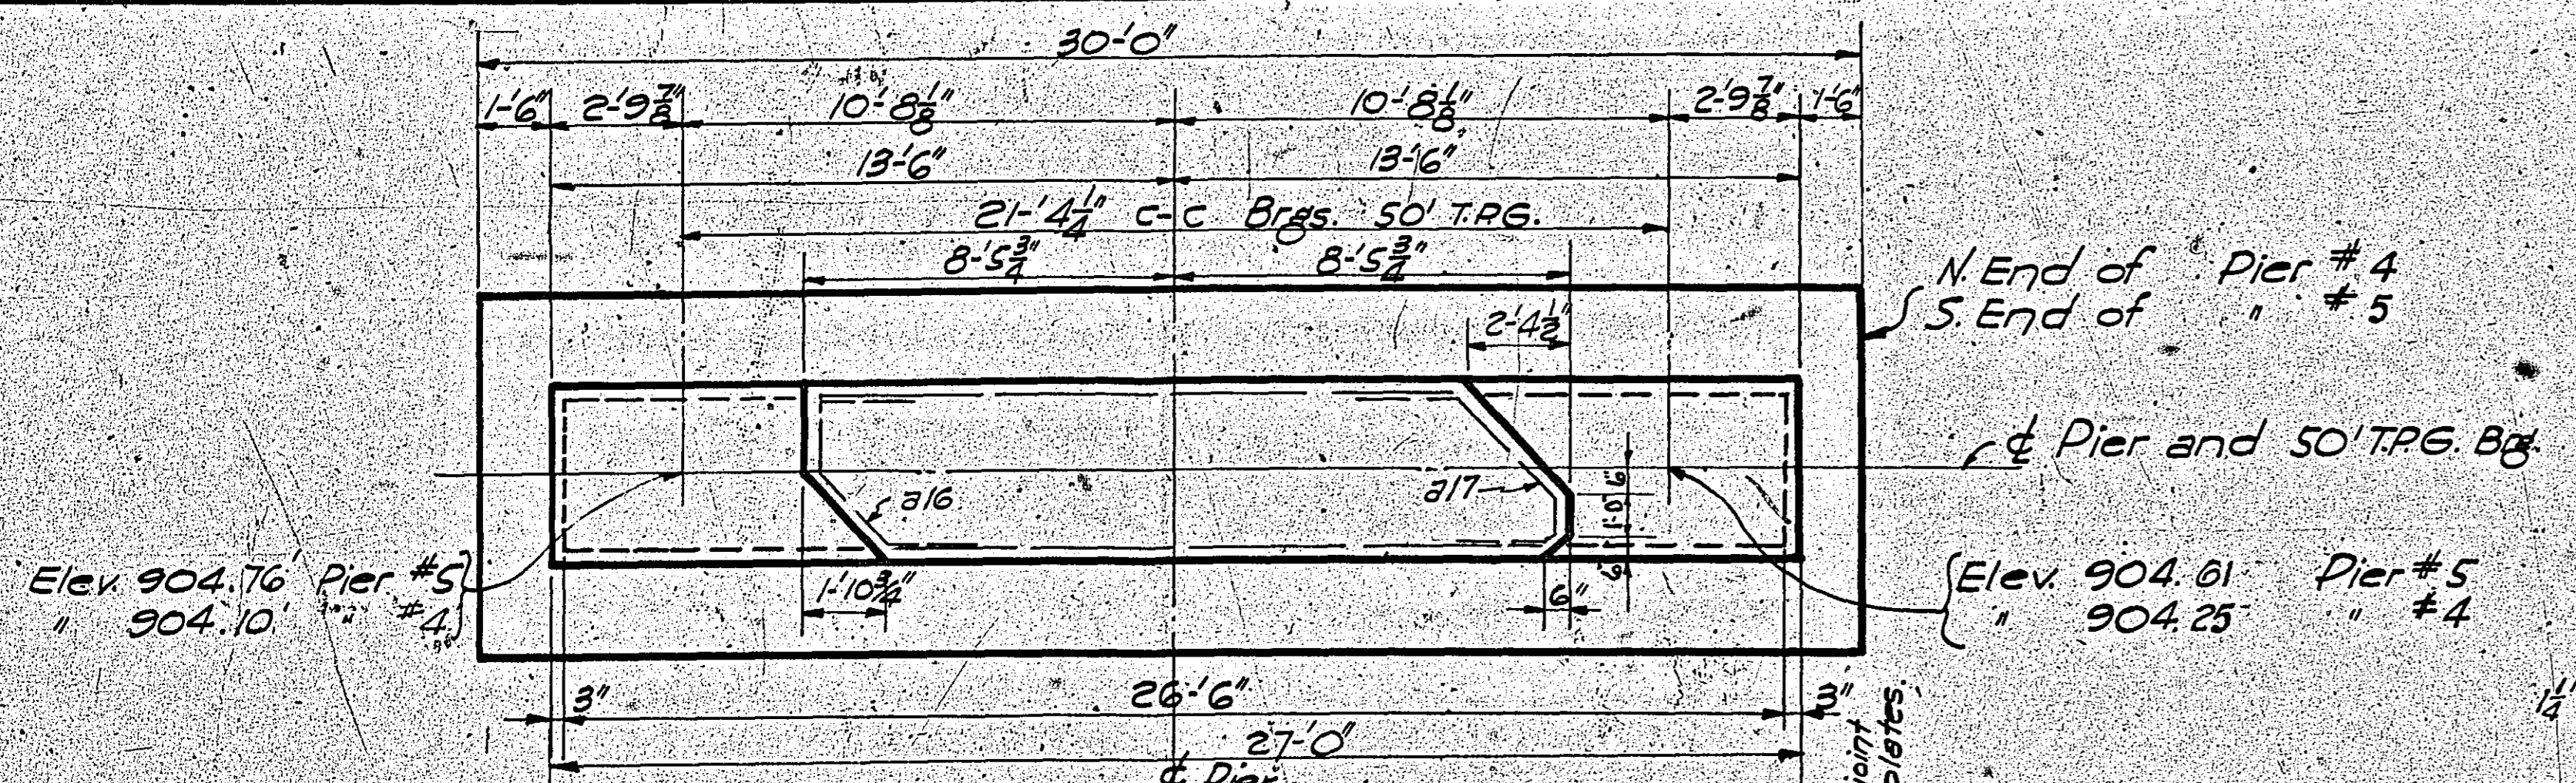 30'-0"
1'-6" 2'-9 7/8" 10'-8 1/8" 10'-8 1/8" 2'-9 7/8" 1'-6"
13'-6" 13'-6"
21'-4 1/4" c-c Brgs. 50' T.P.G.
8'-5 3/4" 8'-5 3/4"
N. End of Pier # 4
S. End of " # 5
2'-4 1/2"
℄ Pier and 50' T.P.G. Brg.
a16
a17
6"
1'-0"
6"
Elev. 904.76' Pier #5
" 904.10' " #4
1'-10 3/4"
6"
Elev. 904.61 Pier #5
" 904.25 " #4
3" 26'-6" 3"
27'-0"
℄ Pier
joint
plates.
1 1/4"